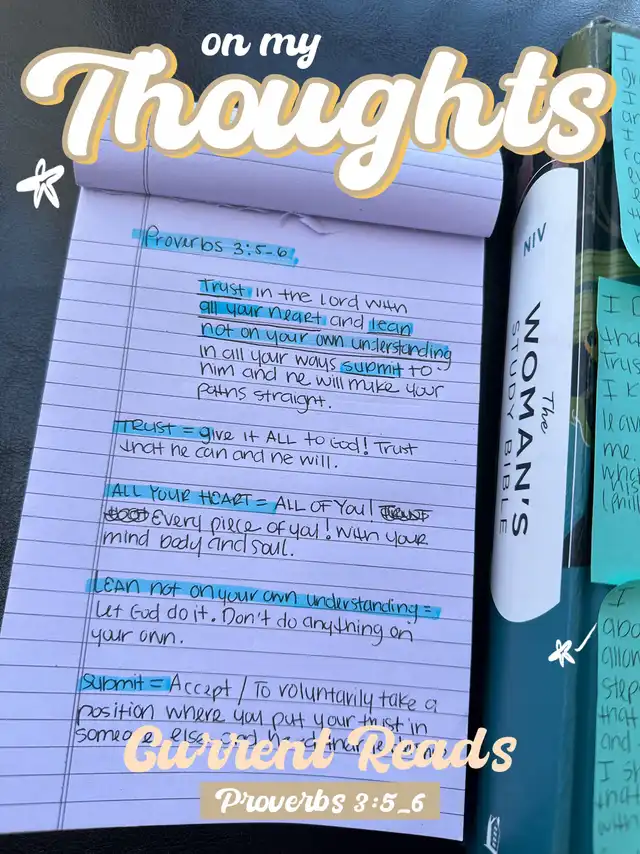 on my
Thoughts
Proverbs 3:5-6
Trust in the Lord with
all your heart and lean
not on your own understanding
in all your ways submit to
him and he will make your
paths straight.
TRUST = give it ALL to God! Trust
that he can and he will.
ALL YOUR HEART = ALL OF YOU!
Every piece of you! With your
mind body and soul.
LEAN not on your own understanding =
Let God do it. Don't do anything on
your own.
Submit = Accept / To voluntarily take a
position where you put your trust in
someone else
Current Reads
Proverbs 3:5_6
NIV
The
WOMAN'S
STUDY BIBLE
I
that
Trus
I k
leav
me.
whis
I
abo
allow
step
that
and
I sh
that
with